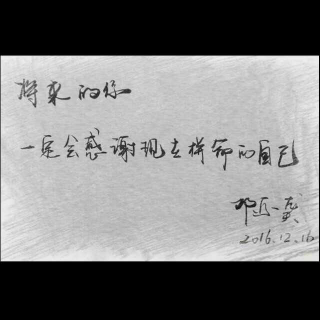 将来的你
一定会感谢现在拼命的自己
2016.12.16